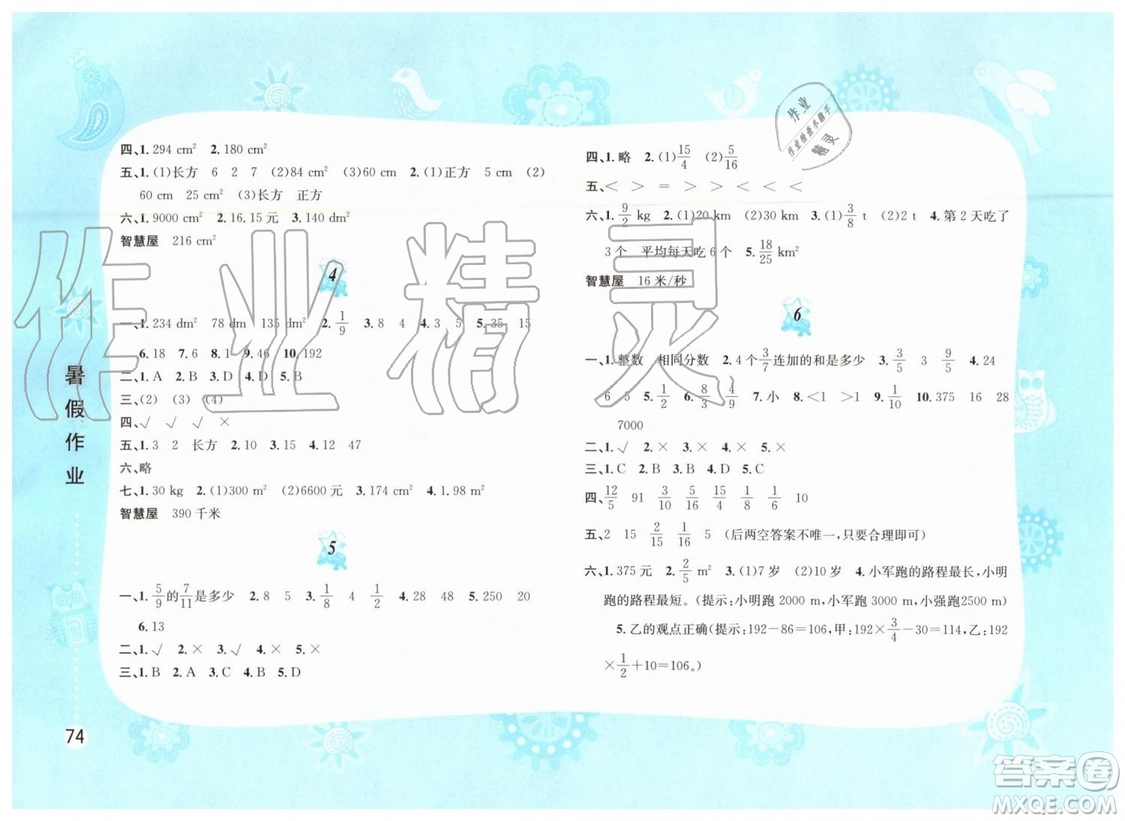 四、1. 294 cm² 2. 180 cm²
五、1. (1)长方 6 2 7 (2)84 cm² (3)60 cm 2. (1)正方 5 cm (2)
60 cm 25 cm² (3)长方 正方
六、1. 9000 cm² 2. 16.15 元 3. 140 dm²
智慧屋 216 cm²
4
一、1. 234 dm² 78 dm 135 dm² 2. 1/9 3. 8 4 4. 3 5 5. 35 15
6. 18 7. 6 8. 10 9. 46 10. 192
二、1. A 2. B 3. C 4. D 5. B
三、(2) (3) (4)
四、√ √ √ ×
五、1. 3 2 长方 2. 10 3. 15 4. 12 47
六、略
七、1. 30 kg 2. (1)300 m² (2)6600 元 3. 174 cm² 4. 1.98 m²
智慧屋 390 千米
5
一、1. 5/9的7/11是多少 2. 8 5 3. 1/8 4 1/2 4. 28 48 5. 250 20
6. 13
二、1. √ 2. × 3. √ 4. × 5. ×
三、1. B 2. A 3. C 4. D 5. A
四、1. 略 2. (1)15/4 (2)5/16
五、< > = < >
六、1. 9/2 kg 2. (1)20 km (2)30 km 3. (1)3/8 t (2)2 t 4. 第 2 天吃了
3 个 平均每天吃 6 个 5. 18/25 km²
智慧屋 16 米/秒
6
一、1. 整数 相同分数 2. 4 个 3/7 连加的和是多少 3. 3/5 3 9/5 4. 24
6 5 5. 1/2 6. 8/3 4/9 7. 小 8. <1 >1 9. 1/10 10. 375 16 28
7000
二、1. √ 2. × 3. × 4. × 5. ×
三、1. C 2. B 3. B 4. B 5. C
四、12/5 91 3/10 5/16 5/14 1/2 1/6 10
五、2 15 2/15 1/16 5 (后两空答案不唯一,只要合理即可)
六、1. 375 元 2. 2/5 m² 3. (1)7 岁 (2)12 岁 4. 小军跑的路程最长,小明
跑的路程最短。(提示:小明跑 2000 m,小军跑 3000 m,小强跑2500 m)
5. 乙的观点正确(提示:192-86=106,甲:192×3/4-30=114,乙:192
×1/2+10=106。)
暑假作业
74
作业精灵
作业
作业检查小助手
精灵
答案圈
MXQE.COM